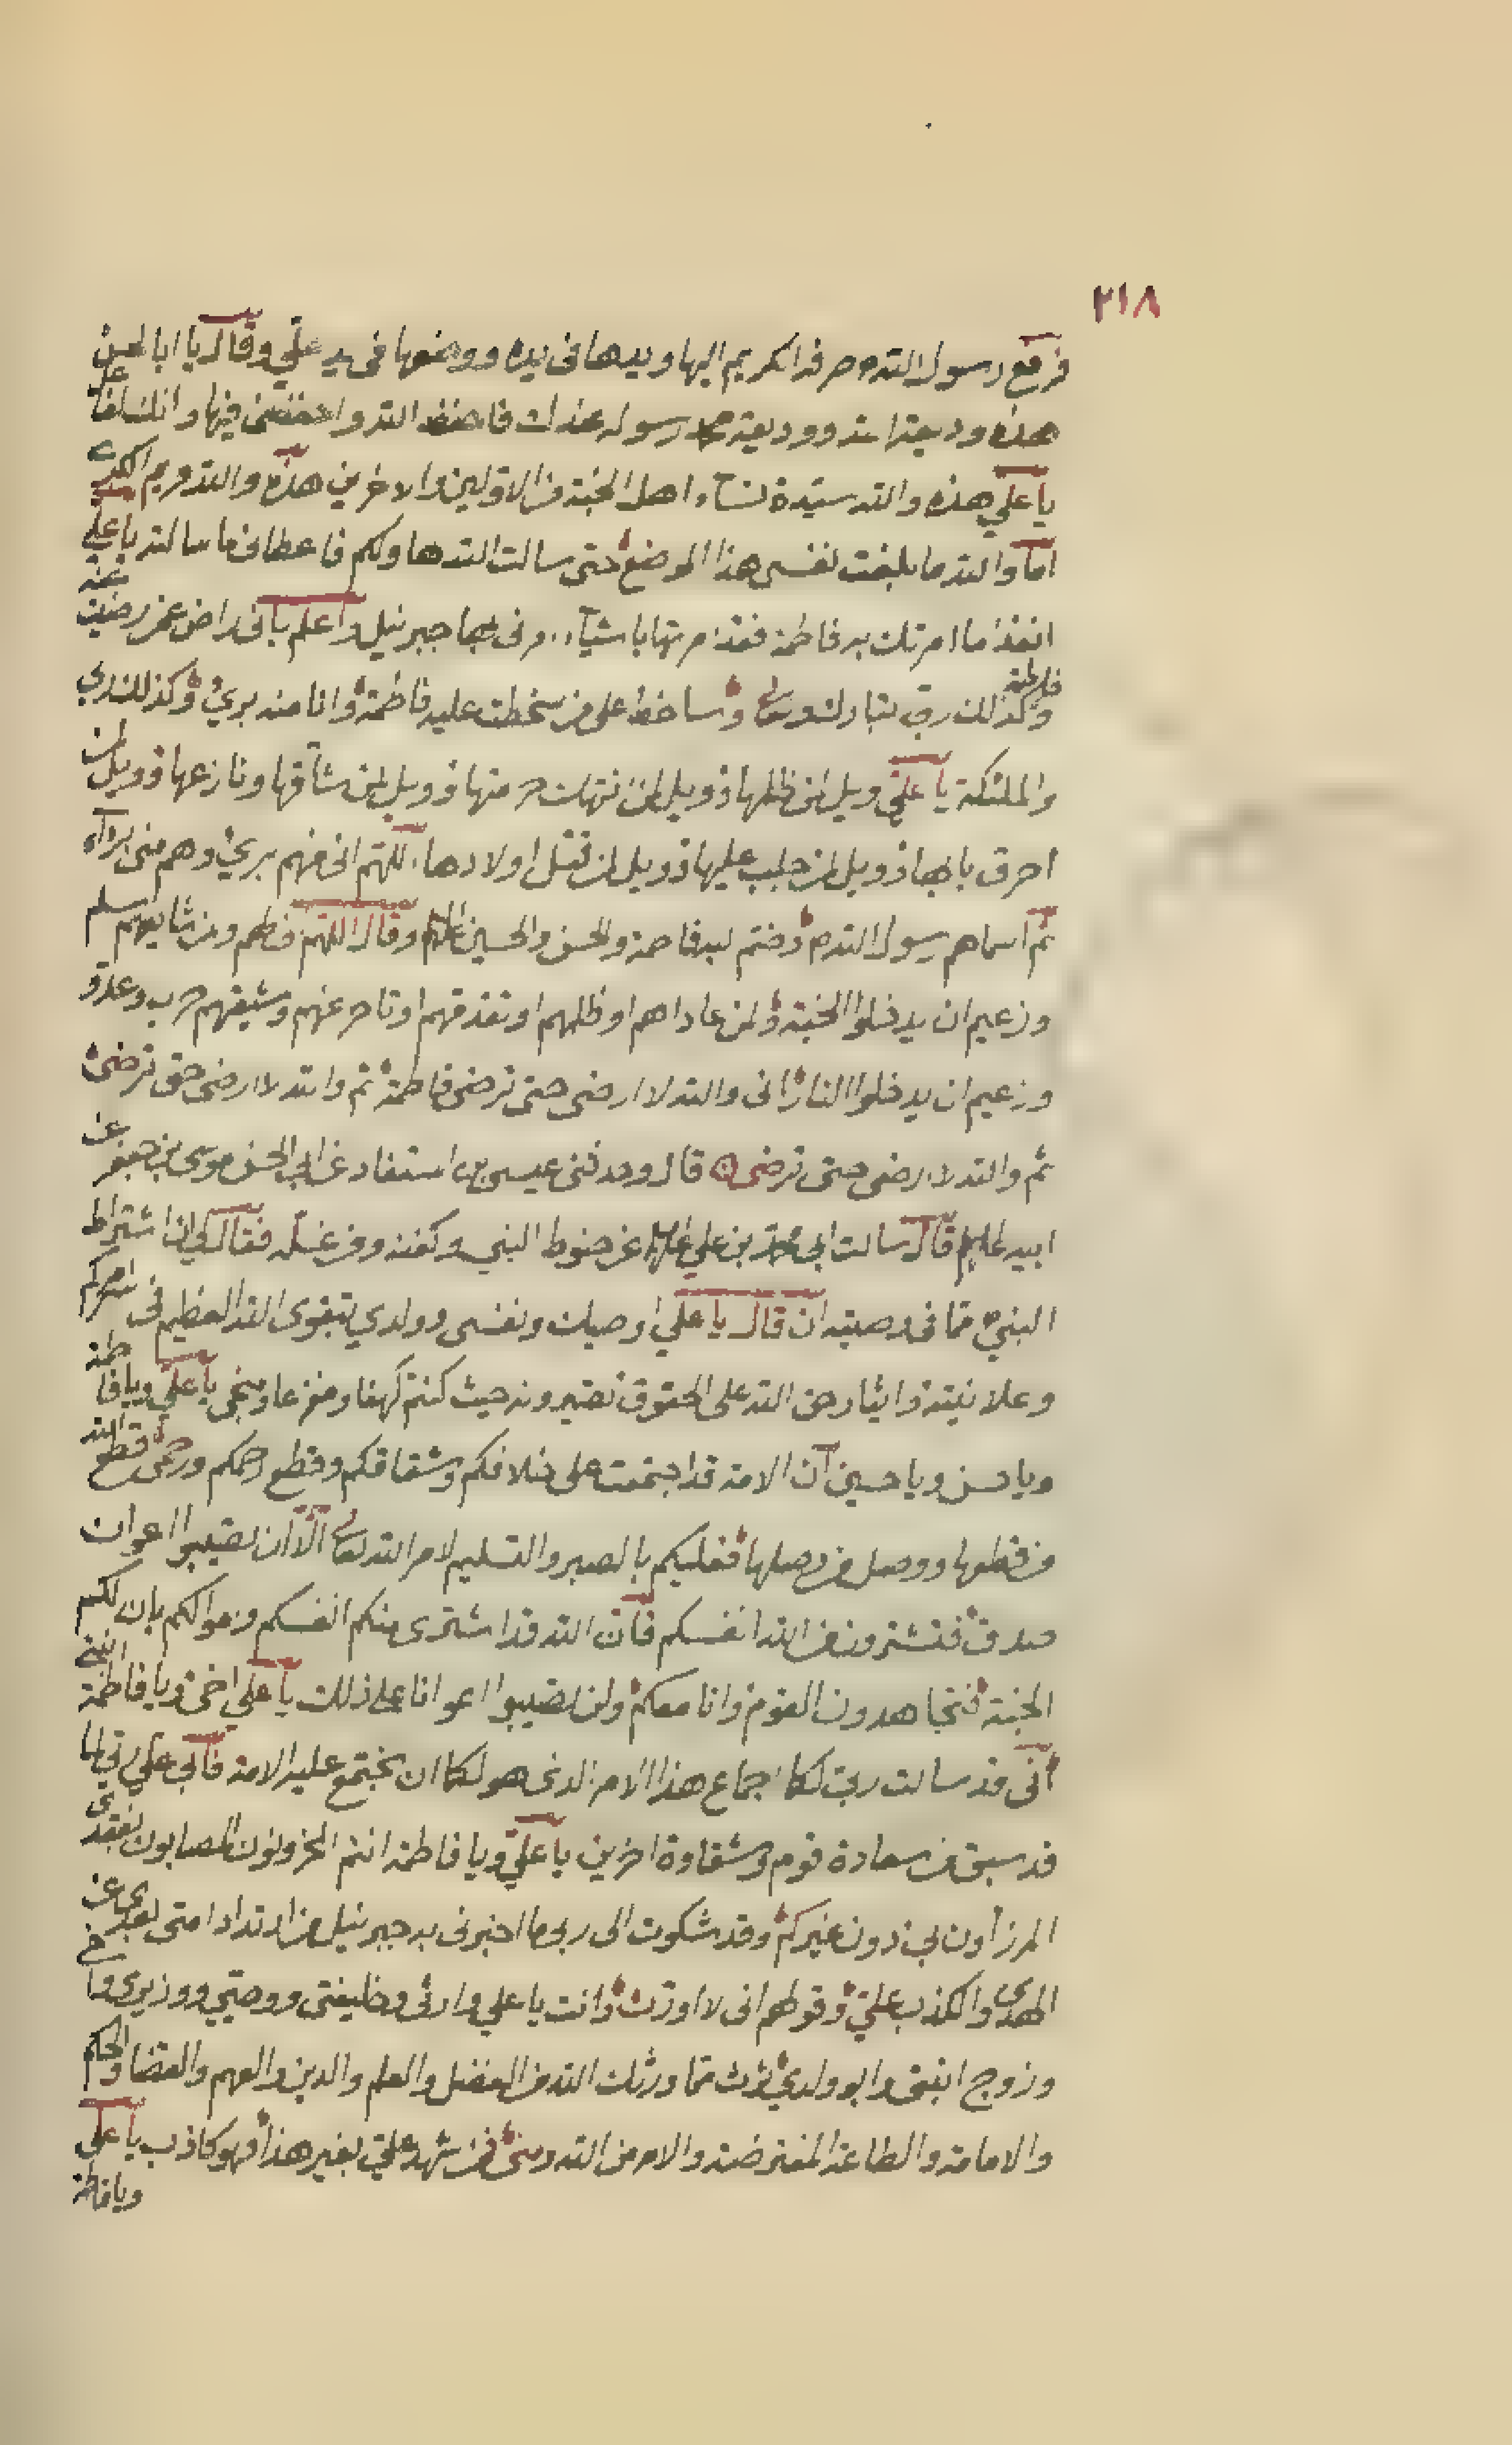 ٢١٨
فرفع رسول الله ص راسه الكريم اليها ويدها فى يده ووضعها فى يد علي وقال يا ابا الحسن
هذه وديعة الله ووديعة محمد رسوله عندك فاحفظ الله واحفظنى فيها وانك لفاعل
يا علي هذه والله سيدة نساء اهل الجنة من الاولين والاخرين هذه والله مريم الكبرى
اما والله ما بلغت نفسى هذا الموضع حتى سالت الله لها ولكم فاعطانى ما سالته يا علي
انفذ ما امرتك به فاطمة فقد امرتها باشياء امرنى بها جبرئيل واعلم بانى راض عمن رضيت عنه
فاطمة وكذلك ربى تبارك وتعالى وساخط على من سخطت عليه فاطمة وانا منه بريء وكذلك ربي
والملئكة يا علي ويل لمن ظلمها وويل لمن انتهك حرمتها وويل لمن شاقها ونازعها وويل لمن
احرق بابها وويل لمن جلب عليها وويل لمن قتل اولادها اللهم انى منهم بريء وهم منى براء
ثم اسماهم رسول الله ص وضم اليه فاطمة والحسن والحسين عليهم وقال اللهم انى لهم ومن شايعهم سلم
وزعيم ان يدخلوا الجنة ولمن عاداهم او ظلمهم او تقدمهم او تاخر عنهم وشيعتهم حرب وعدو
وزعيم ان يدخلوا النار انى والله لا ارضى حتى ترضى فاطمة ثم والله لا ارضى حتى ترضى
ثم والله لا ارضى حتى ترضى قال وحدثنى عيسى بن استفاد عن ابى الحسن موسى بن جعفر عن
ابيه عليهم قال سالت ابى محمد بن علي عليهما عن حنوط النبي وكفنه ومن غسله فقال كان اشتراط
النبي ص مما فى وصيته ان قال يا علي اوصيك ونفسى وولدي بتقوى الله العظيم فى سركم
وعلانيته وايثار حق الله على الحقوق تصيرون حيث كنتم كهفا ومفزعا ومنجى يا علي ويا فاطمة
ويا حسن ويا حسين ان الامة قد اجتمعت على خلافكم وشقاقكم وقطع رحمكم ورحمى قطع الله
من قطعها ووصل من وصلها فعليكم بالصبر والتسليم لامر الله تعالى الا ان تصيبوا اعوان
صدق فتشترون من الله انفسكم فان الله قد اشترى منكم انفسكم واموالكم بان لكم
الجنة فتجاهدون القوم وانا معكم ولن تصيبوا اعوانا على ذلك يا علي اخى ويا فاطمة ابنتي
انى قد سالت ربى لكما اجماع هذا الامر الذى هو لكما ان يجتمع عليه الامة فابى علي ربى لما
قد سبق من سعادة قوم وشقاوة اخرين يا علي ويا فاطمة انتم المحزونون المصابون بفقدى
المرزاون بى دون غيركم وقد شكوت الى ربى ما اخبرنى به جبرئيل من ارتداد امتى بعدى عن
الهدى والكذب علي وقولهم انى لا اورث وانت يا علي وارثى وخليفتى ووصيي ووزيرى واخي
وزوج ابنتى وابو ولدي ترث مما ورثك الله من الفضل والعلم والدين والفهم والقضا والحكم
والامامة والطاعة المفترضة والامر من الله ومنى فمن شهد علي بغير هذا فهو كاذب يا علي
ويا فاطمة